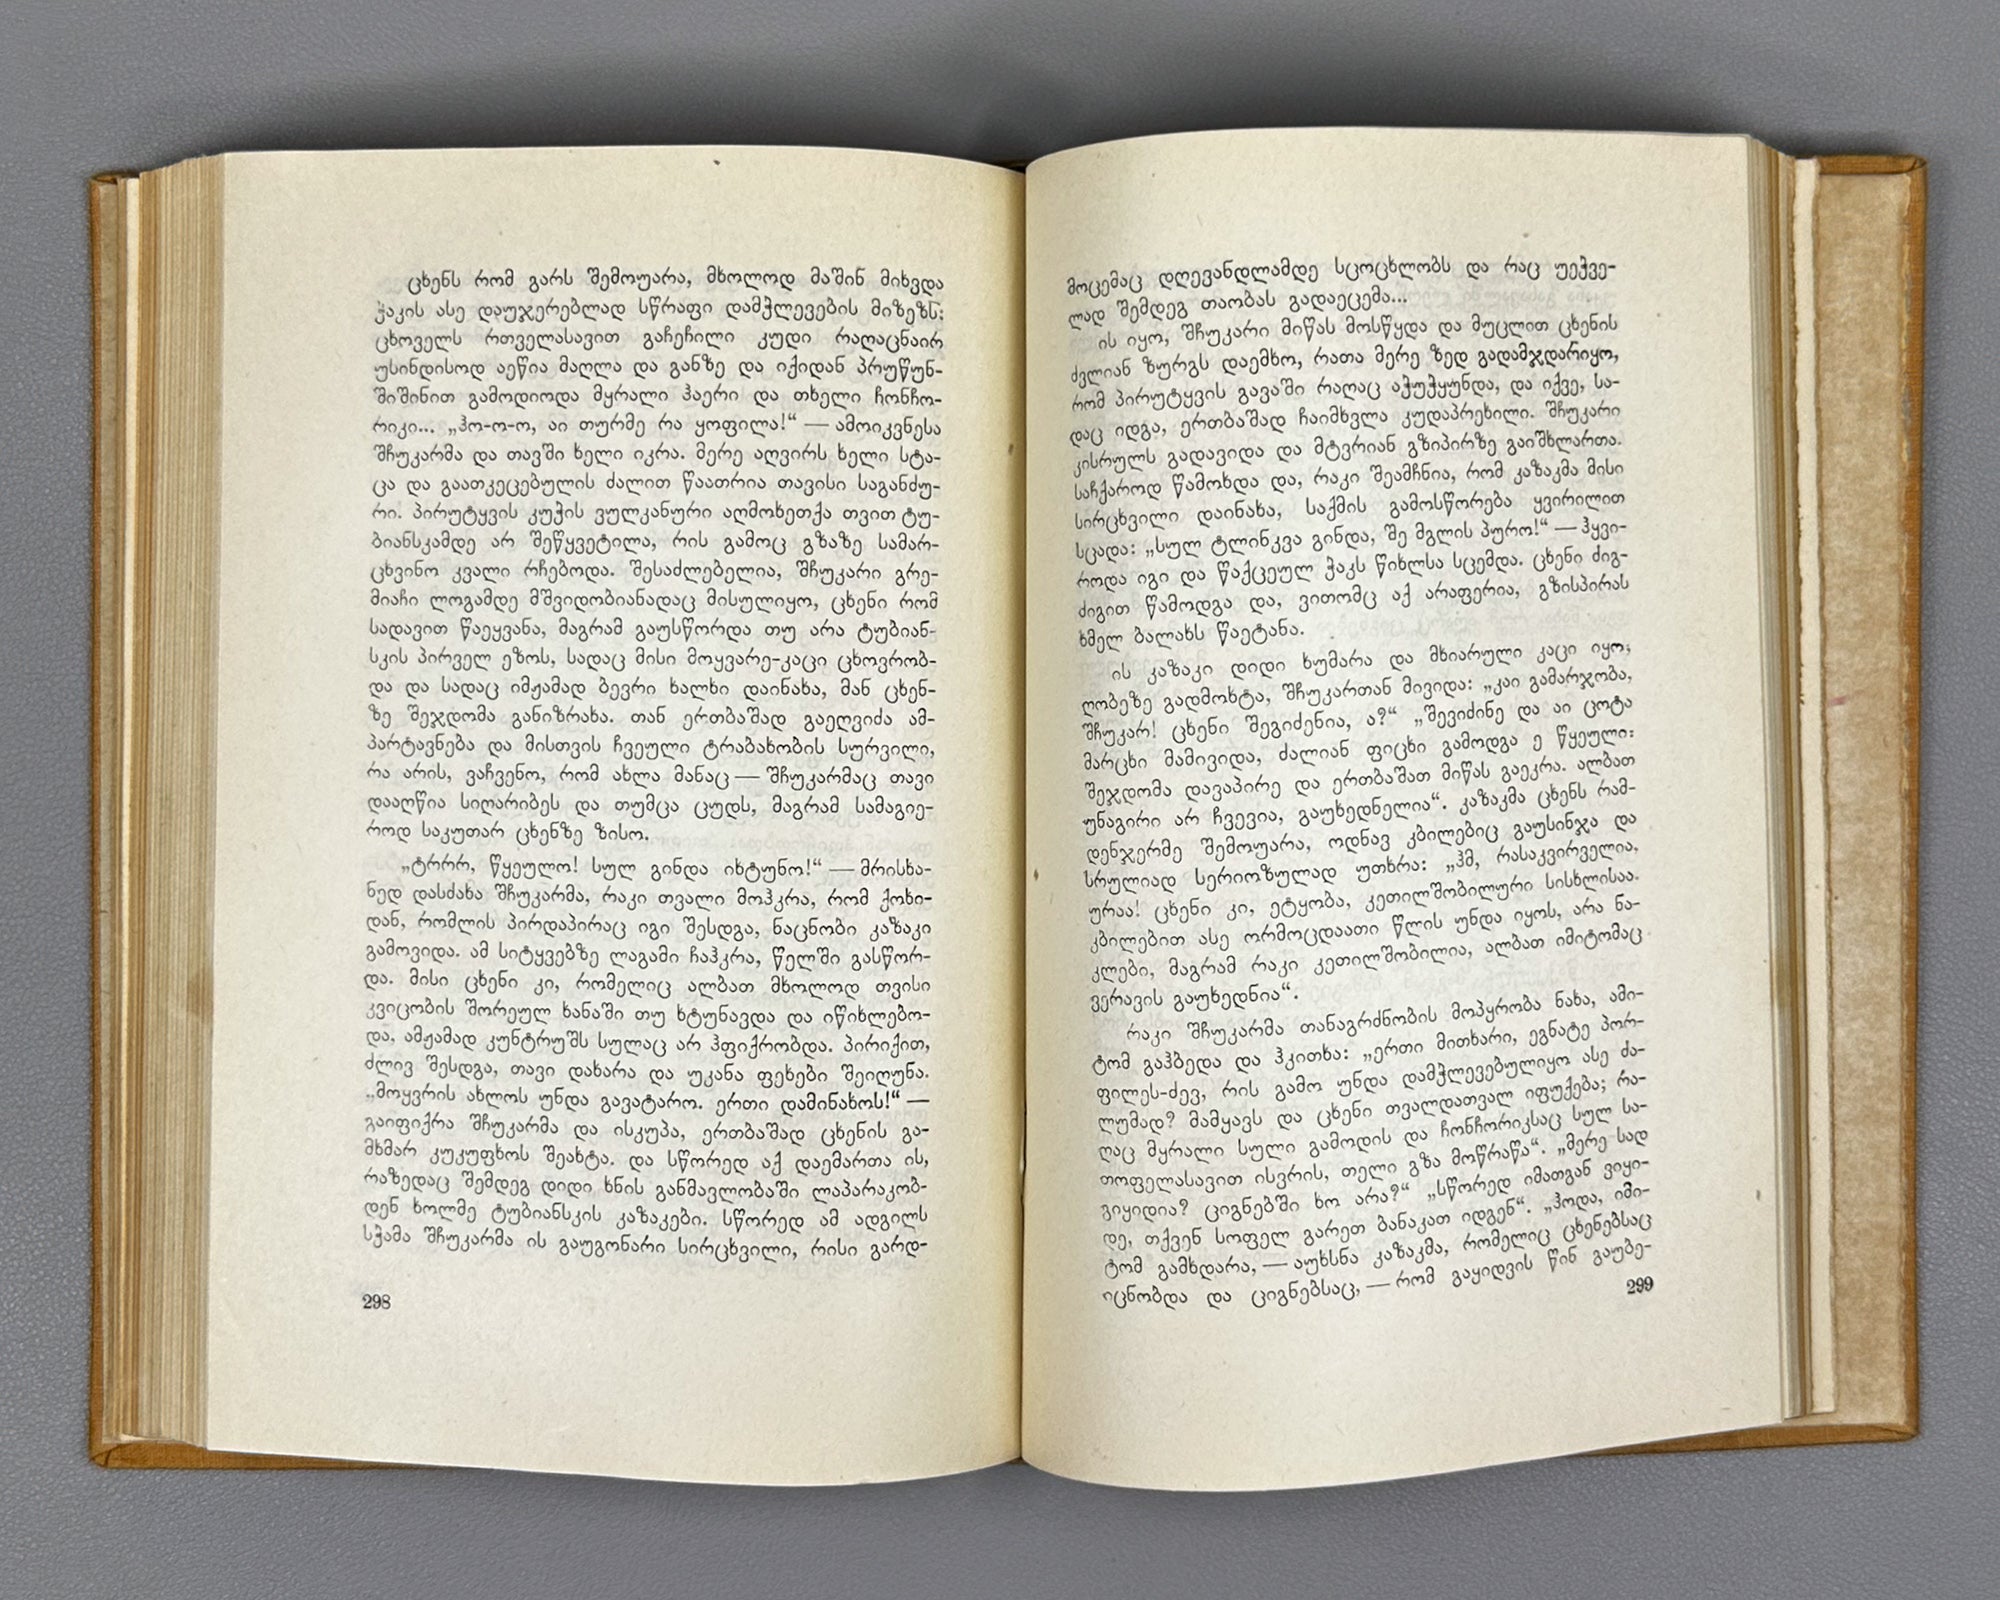 ცხენს რომ გარს შემოუარა, მხოლოდ მაშინ მიხვდა
ჭაკის ასე დაუჯერებლად სწრაფი დამჭლევების მიზეზს:
ცხოველს რთველასავით გაჩეჩილი კუდი რაღაცნაირ
უსინდისოდ აეწია მაღლა და განზე და იქიდან პრუწუნ-
შიშინით გამოდიოდა მყრალი ჰაერი და თხელი ჩონჩო-
რიკი... „ჰო-ო-ო, აი თურმე რა ყოფილა!“ — ამოიკვნესა
შჩუკარმა და თავში ხელი იკრა. მერე აღვირს ხელი სტა-
ცა და გაათკეცებულის ძალით წაათრია თავისი საგანძუ-
რი. პირუტყვის კუჭის ვულკანური აღმოხეთქა თვით ტუ-
ბიანსკამდე არ შეწყვეტილა, რის გამოც გზაზე სამარ-
ცხვინო კვალი რჩებოდა. შესაძლებელია, შჩუკარი გრე-
მიაჩი ლოგამდე მშვიდობიანადაც მისულიყო, ცხენი რომ
სადავით წაეყვანა, მაგრამ გაუსწორდა თუ არა ტუბიან-
სკის პირველ ეზოს, სადაც მისი მოყვარე-კაცი ცხოვრობ-
და და სადაც იმჟამად ბევრი ხალხი დაინახა, მან ცხენ-
ზე შეჯდომა განიზრახა. თან ერთბაშად გაეღვიძა ამ-
პარტავნება და მისთვის ჩვეული ტრაბახობის სურვილი,
რა არის, ვაჩვენო, რომ ახლა მანაც — შჩუკარმაც თავი
დააღწია სიღარიბეს და თუმცა ცუდს, მაგრამ სამაგიე-
როდ საკუთარ ცხენზე ზისო.
„ტრრრ, წყეულო! სულ გინდა იხტუნო!“ — მრისხა-
ნედ დასძახა შჩუკარმა, რაკი თვალი მოჰკრა, რომ ქოხი-
დან, რომლის პირდაპირაც იგი შესდგა, ნაცნობი კაზაკი
გამოვიდა. ამ სიტყვებზე ლაგამი ჩაჰკრა, წელში გასწორ-
და. მისი ცხენი კი, რომელიც ალბათ მხოლოდ თვისი
კვიცობის შორეულ ხანაში თუ ხტუნავდა და იწიხლებო-
და, ამჟამად კუნტრუშს სულაც არ ჰფიქრობდა. პირიქით,
ძლივ შესდგა, თავი დახარა და უკანა ფეხები შეიღუნა.
„მოყვრის ახლოს უნდა გავატარო. ერთი დამინახოს!“ —
გაიფიქრა შჩუკარმა და ისკუპა, ერთბაშად ცხენის გა-
მხმარ კუკუფხოს შეახტა. და სწორედ აქ დაემართა ის,
რაზედაც შემდეგ დიდი ხნის განმავლობაში ლაპარაკობ-
დენ ხოლმე ტუბიანსკის კაზაკები. სწორედ ამ ადგილს
სჭამა შჩუკარმა ის გაუგონარი სირცხვილი, რისი გარდ-
298
მოცემაც დღევანდლამდე სცოცხლობს და რაც უეჭვე-
ლად შემდეგ თაობას გადაეცემა...
ის იყო, შჩუკარი მიწას მოსწყდა და მუცლით ცხენის
ძვლიან ზურგს დაემხო, რათა მერე ზედ გადამჯდარიყო,
რომ პირუტყვის გავაში რაღაც აჭუჭყუნდა, და იქვე, სა-
დაც იდგა, ერთბაშად ჩაიმხვლა კუდაპრეხილი. შჩუკარი
კისრულს გადავიდა და მტვრიან გზიპირზე გაიშხლართა.
საჩქაროდ წამოხდა და, რაკი შეამჩნია, რომ კაზაკმა მისი
სირცხვილი დაინახა, საქმის გამოსწორება ყვირილით
სცადა: „სულ ტლინკვა გინდა, შე მგლის პურო!“ — ჰყვი-
როდა იგი და წაქცეულ ჭაკს წიხლსა სცემდა. ცხენი ძიგ-
ძიგით წამოდგა და, ვითომც აქ არაფერია, გზისპირას
ხმელ ბალახს წაეტანა.
ის კაზაკი დიდი ხუმარა და მხიარული კაცი იყო;
ღობეზე გადმოხტა, შჩუკართან მივიდა: „კაი გამარჯობა,
შჩუკარ! ცხენი შეგიძენია, ა?“ „შევიძინე და აი ცოტა
მარცხი მამივიდა, ძალიან ფიცხი გამოდგა ე წყეული:
შეჯდომა დავაპირე და ერთბაშათ მიწას გაეკრა. ალბათ
უნაგირი არ ჩვევია, გაუხედნელია“. კაზაკმა ცხენს რამ-
დენჯერმე შემოუარა, ოდნავ კბილებიც გაუსინჯა და
სრულიად სერიოზულად უთხრა: „ჰმ, რასაკვირველია,
ურაა! ცხენი კი, ეტყობა, კეთილშობილური სისხლისაა.
კბილებით ასე ორმოცდაათი წლის უნდა იყოს, არა ნა-
კლები, მაგრამ რაკი კეთილშობილია, ალბათ იმიტომაც
ვერავის გაუხედნია“.
რაკი შჩუკარმა თანაგრძნობის მოპყრობა ნახა, ამი-
ტომ გაჰბედა და ჰკითხა: „ერთი მითხარი, ეგნატე პორ-
ფილეს-ძევ, რის გამო უნდა დამჭლევებულიყო ასე ძა-
ლუმად? მამყავს და ცხენი თვალდათვალ იფუქება; რა-
ღაც მყრალი სული გამოდის და ჩონჩორიკსაც სულ სა-
თოფელასავით ისვრის, თელი გზა მოწრაწა“. „მერე სად
გიყიდია? ციგნებში ხო არა?“ „სწორედ იმათგან ვიყი-
დე, თქვენ სოფელ გარეთ ბანაკათ იდგენ“. „ჰოდა, იმი-
ტომ გამხდარა, — აუხსნა კაზაკმა, რომელიც ცხენებსაც
იცნობდა და ციგნებსაც, — რომ გაყიდვის წინ გაუბე-
299